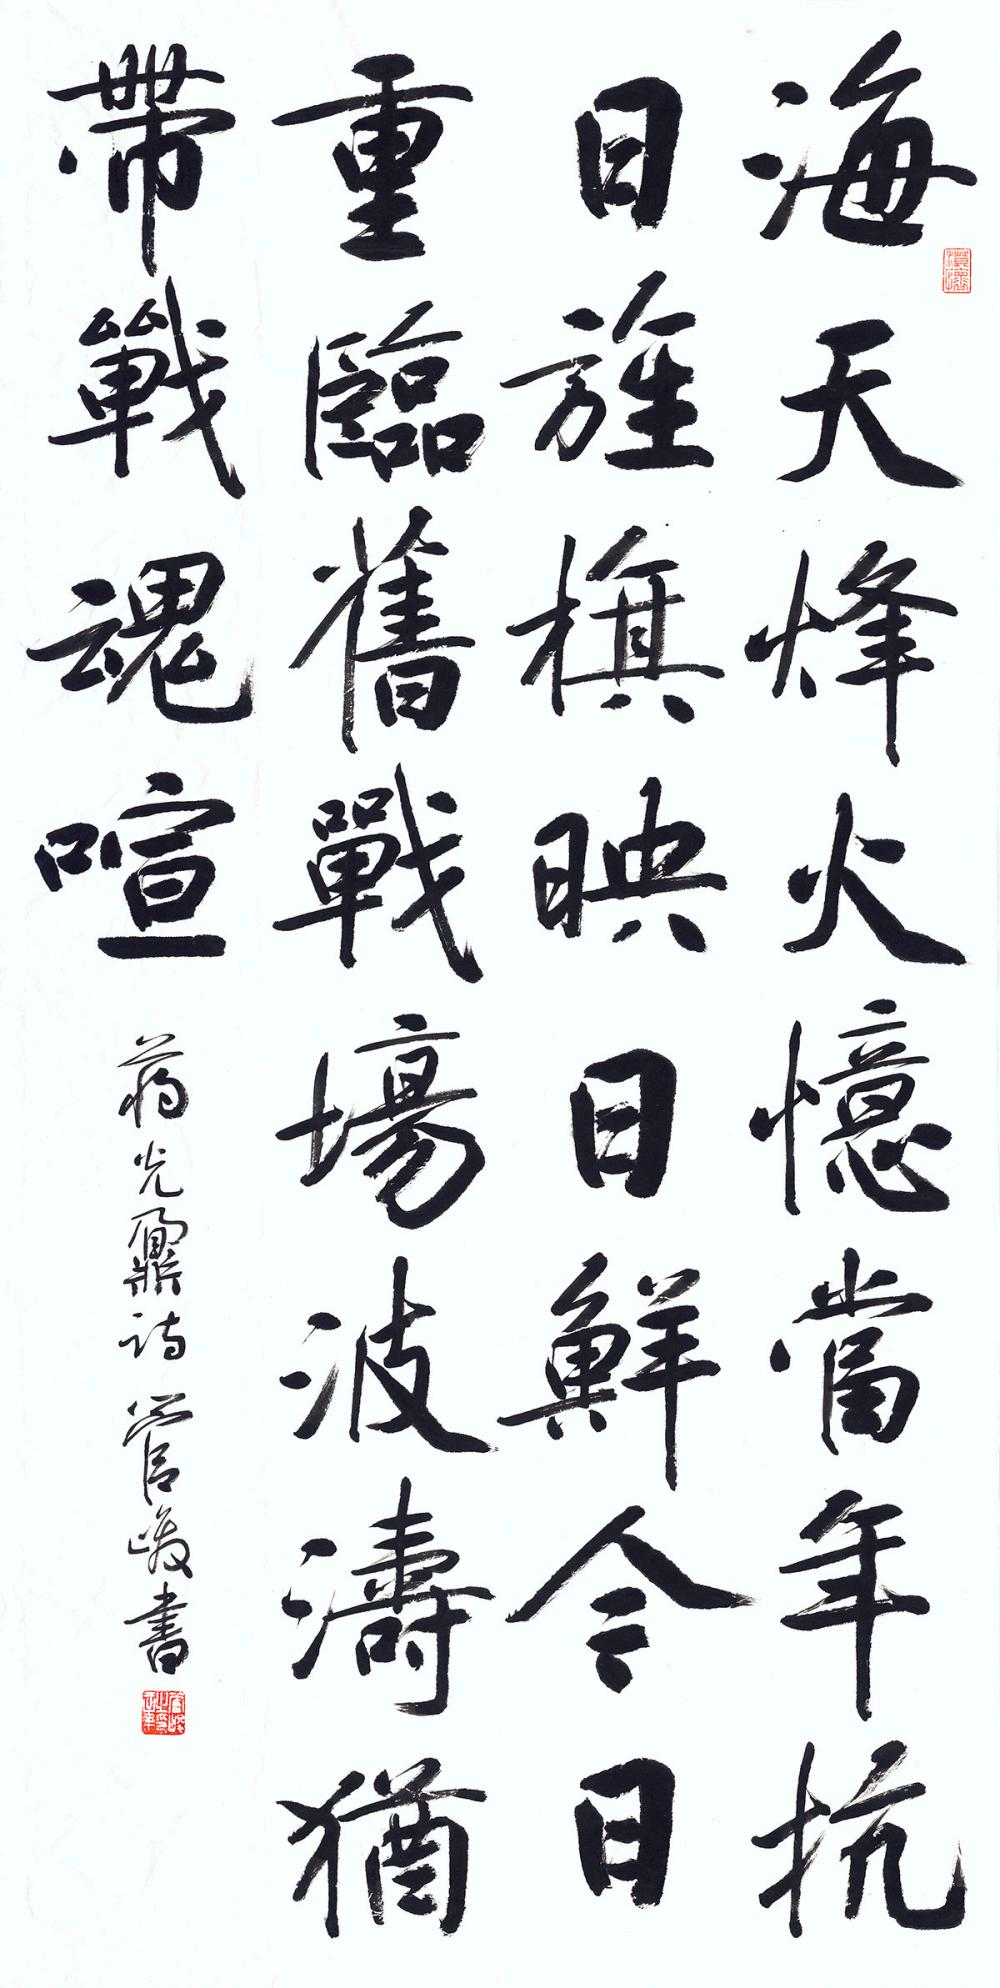 海天烽火憶當年抗
日旌旗映日鮮今日
重臨舊戰場波濤猶
帶戰魂喧
蒋光鼐诗 管峻書